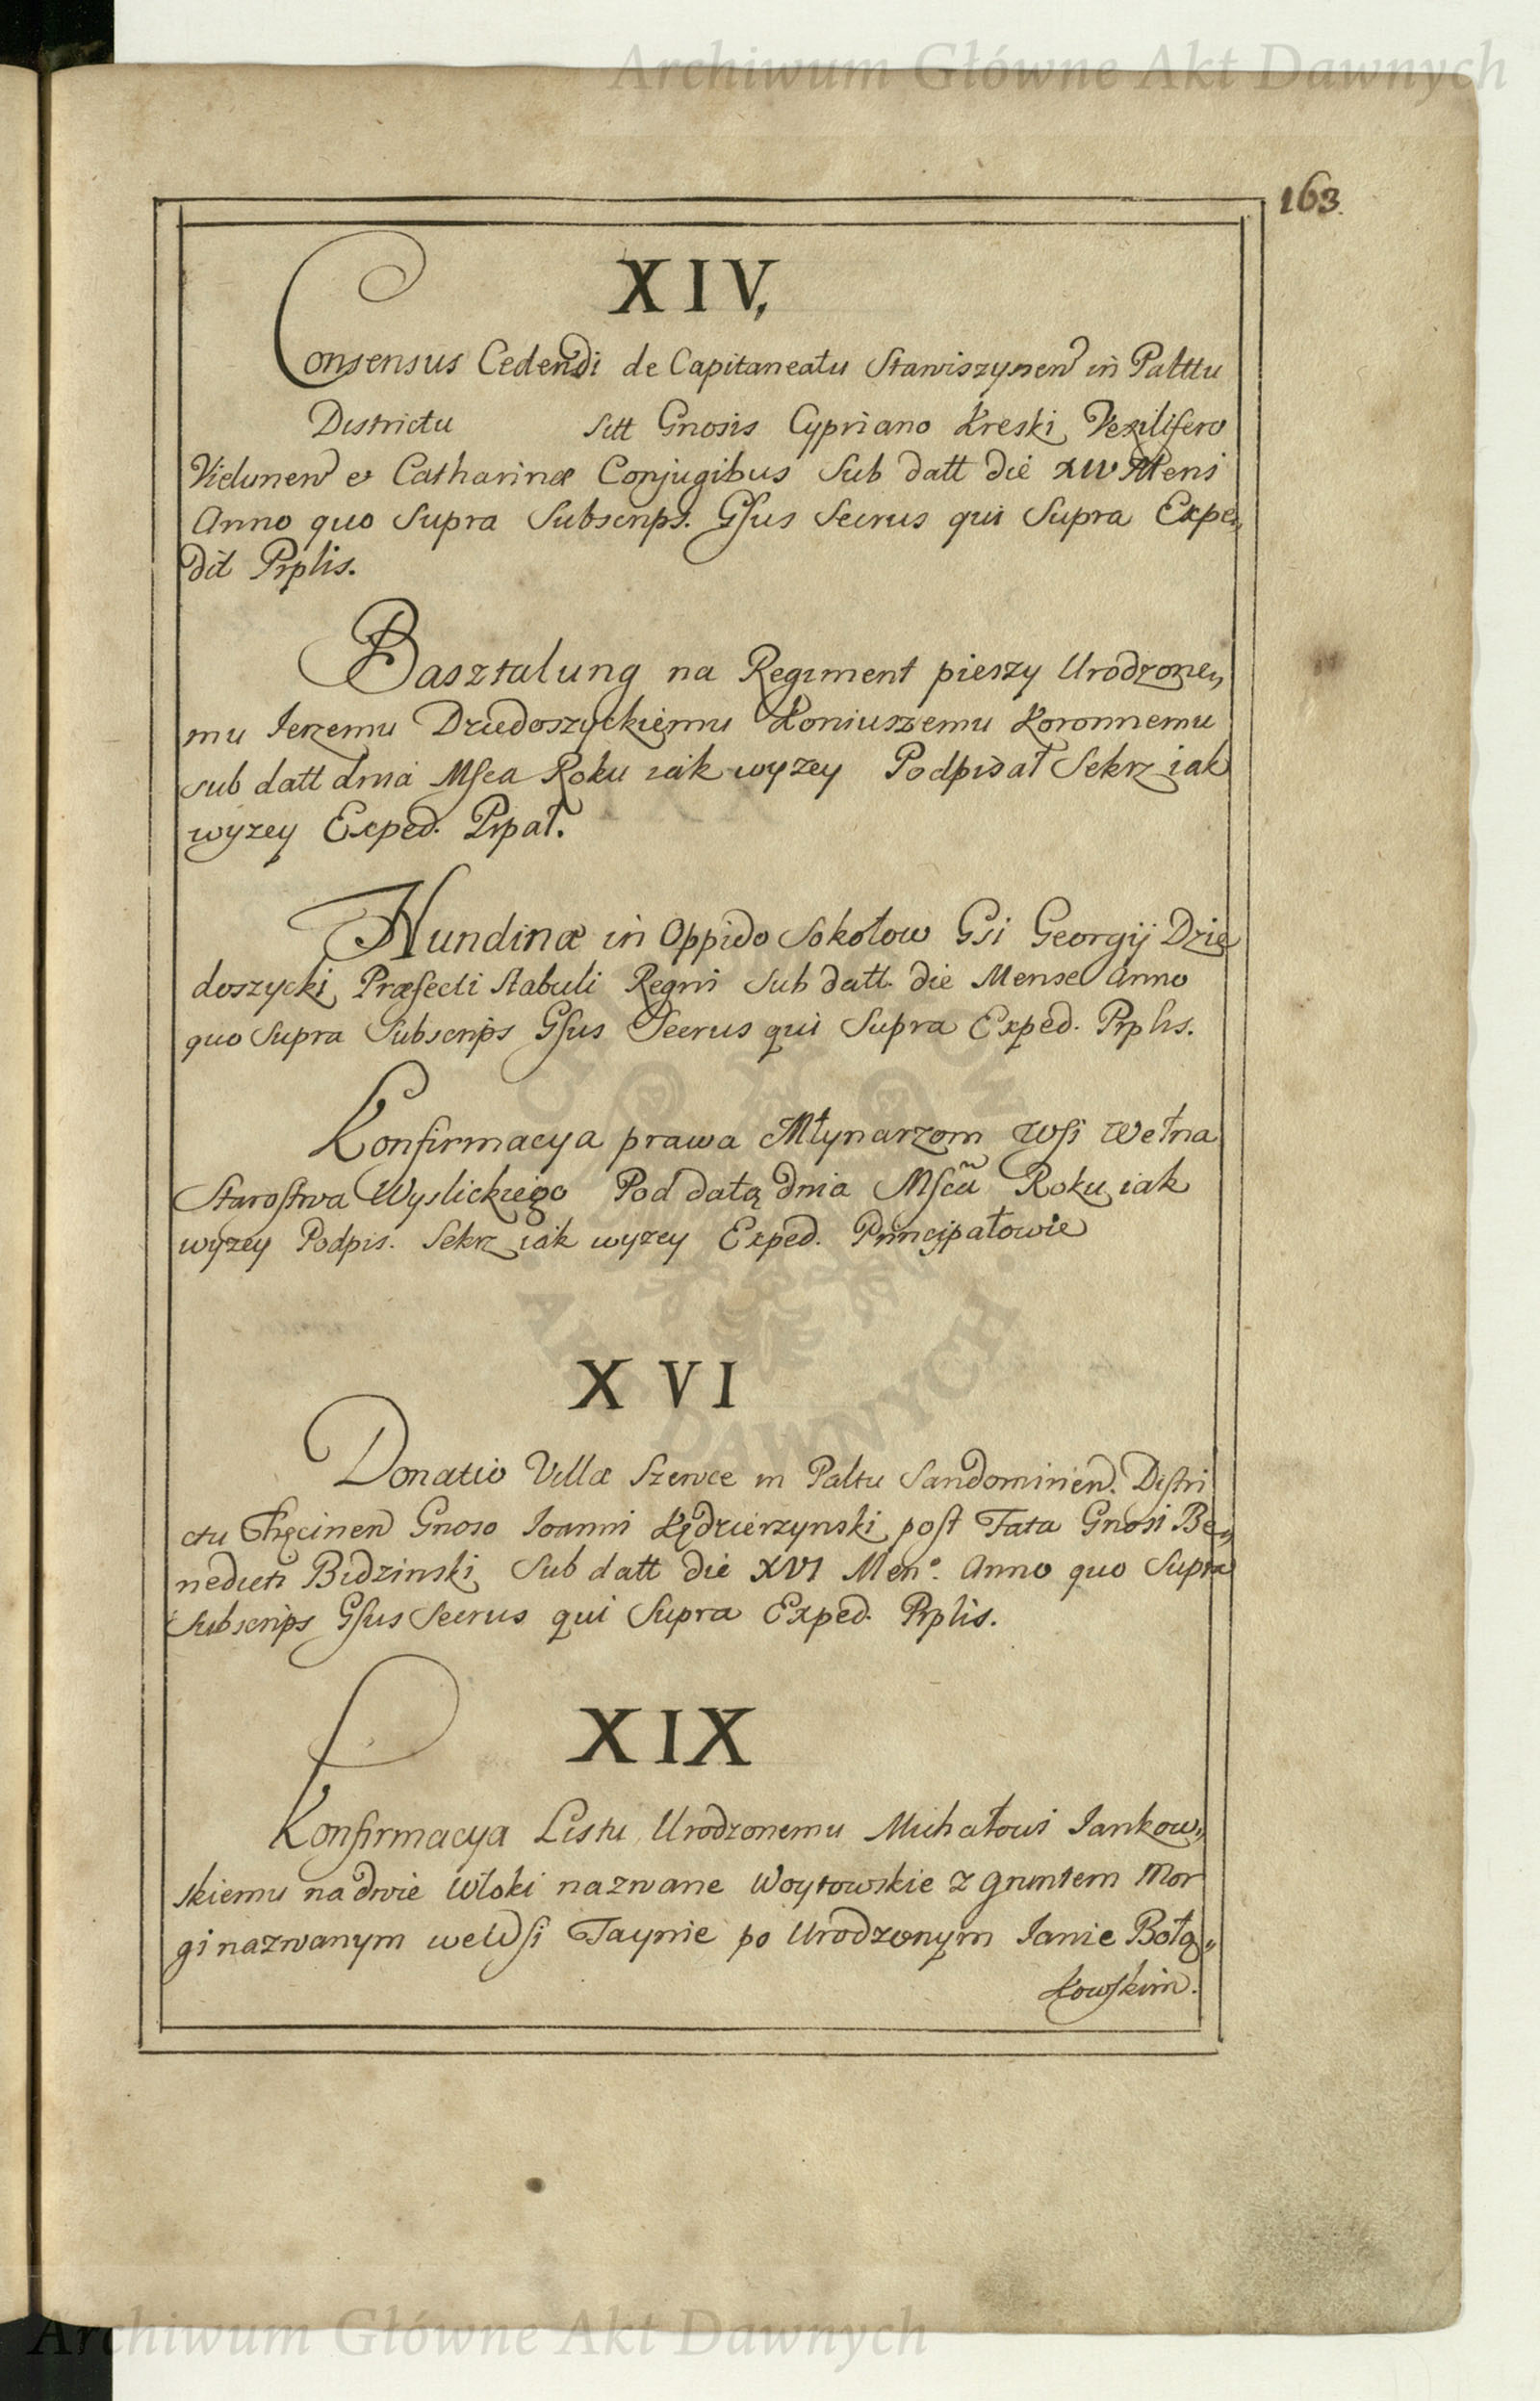 Archiwum Główne Akt Dawnych
163.
XIV,
Consensus Cedendi de Capitaneatu Stawiszynen in Palttu
Districtu sitt Gnosis Cypriano Kreski Vexilifero
Vielunen et Catharinæ Conjugibus Sub datt die XIV Mensi
Anno quo Supra Subscrips. Gsus Secrus qui Supra Expe„
dit Prplis.
Basztalung na Regiment pieszy Urodzone„
mu Jerzemu Dziedoszyckiemu Koniuszemu Koronnemu
sub datt dnia Msca Roku iak wyzey Podpisał Sekrz iak
wyzey Exped. Prpał.
Nundinæ in Oppido Sokołow Gsi Georgij Dzie
doszycki Præfecti Stabuli Regni Sub datt. die Mense Anno
quo Supra Subscrips Gsus Secrus qui Supra Exped. Prplis.
Konfirmacya prawa Młynarzom Wsi Wełna
Starostwa Wyslickiego Pod datą dnia Msca Roku iak
wyzey Podpis. Sekrz iak wyzey Exped. Principałowie
XVI
Donatio Villæ Szewce in Paltu Sandomirien. Distri
ctu Chęcinen Gnoso Joanni Kędzierzynski post Fata Gnosi Be„
nedicti Bidzinski Sub datt die XVI Men.º Anno quo Supra
Subscrips Gsus Secrus qui Supra Exped. Prplis.
XIX
Konfirmacya Listu Urodzonemu Michałowi Iankow„
skiemu na dwie Włoki nazwane Woytowskie z gruntem Mor
gi nazwanym we Wsi Taynie po Urodzonym Ianie Bołą„
kowskim.
Archiwum Główne Akt Dawnych